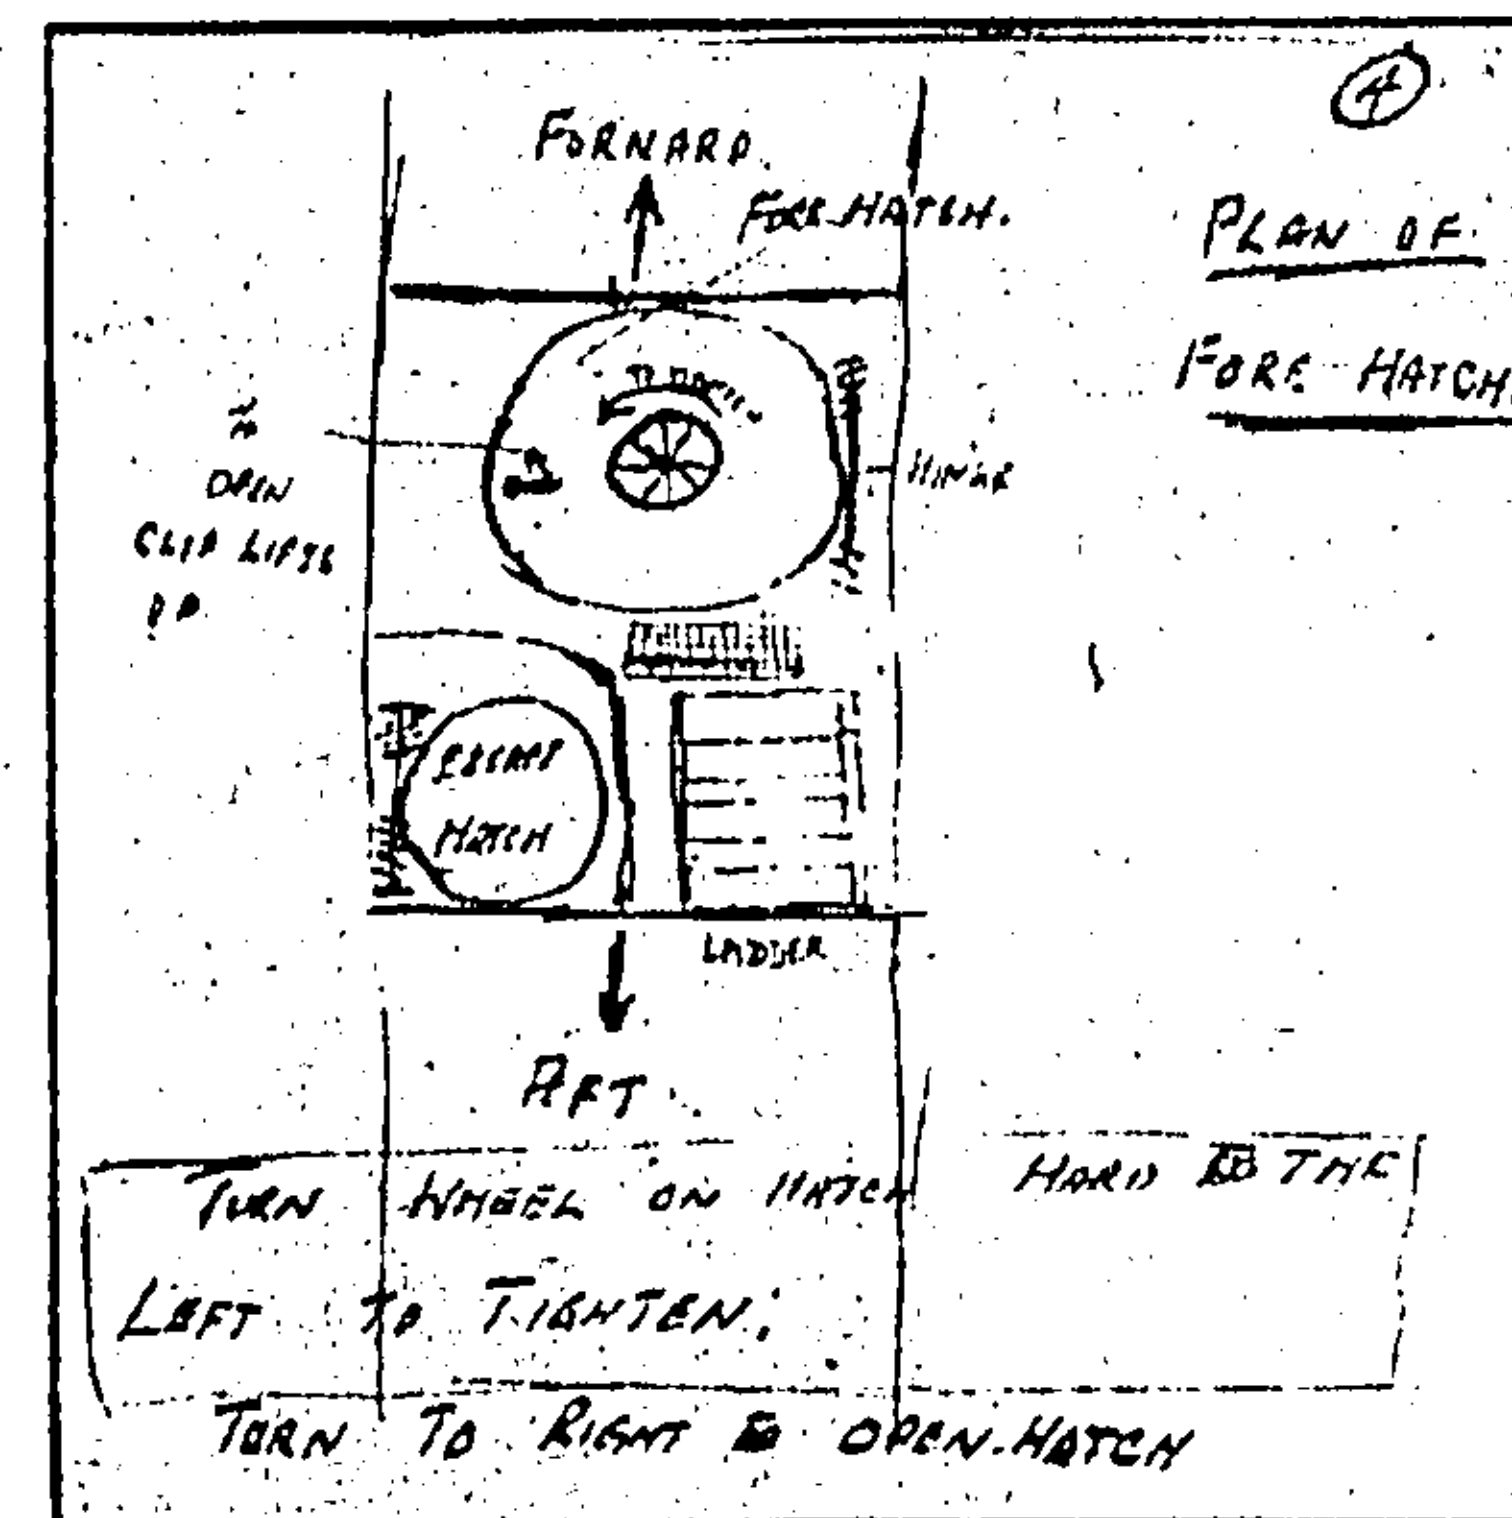 4
PLAN OF
FORE HATCH.
FORWARD
FORE HATCH.
TO
OPEN
CLIP LIFTS
UP
HINGE
ESCAPE
HATCH
LADDER
AFT
TURN WHEEL ON HATCH HARD TO THE
LEFT TO TIGHTEN.
TURN TO RIGHT TO OPEN HATCH